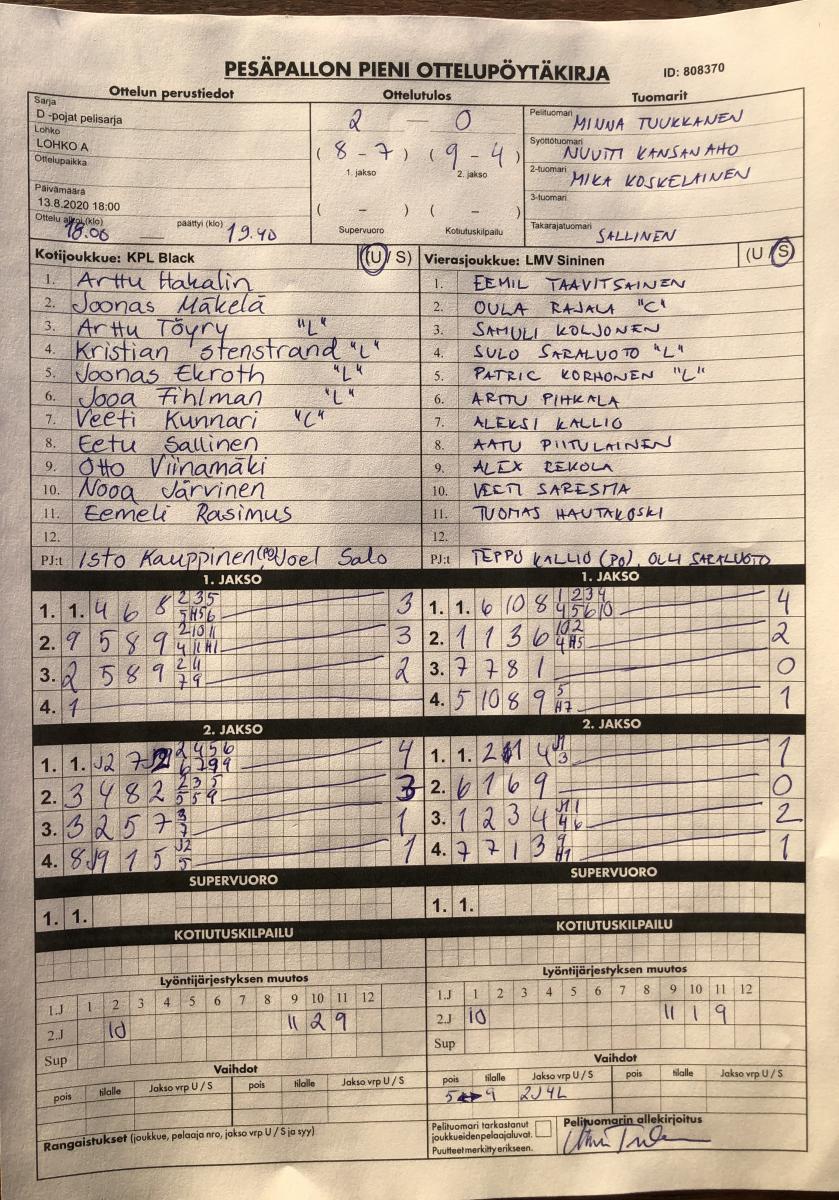 PESÄPALLON PIENI OTTELUPÖYTÄKIRJA
ID: 808370
Ottelun perustiedot
Sarja
D -pojat pelisarja
Lohko
LOHKO A
Ottelupaikka
Päivämäärä
13.8.2020 18:00
Ottelu alkoi (klo) 18.00 päättyi (klo) 19.40
Ottelutulos
2 — 0
( 8 - 7 ) ( 9 - 4 )
1. jakso 2. jakso
( - ) ( - )
Supervuoro Kotiutuskilpailu
Tuomarit
Pelituomari MINNA TUUKKANEN
Syöttötuomari NUUTTI KANSANAHO
2-tuomari MIKA KOSKELAINEN
3-tuomari
Takarajatuomari SALLINEN
Kotijoukkue: KPL Black (U / S)
1. Arttu Hakalin
2. Joonas Mäkelä
3. Arttu Töyry "L"
4. Kristian Stenstrand "L"
5. Joonas Ekroth "L"
6. Jooa Fihlman "L"
7. Veeti Kunnari "C"
8. Eetu Sallinen
9. Otto Viinamäki
10. Nooa Järvinen
11. Eemeli Rasimus
12.
PJ:t Isto Kauppinen (PO), Joel Salo
Vierasjoukkue: LMV Sininen (U / S)
1. EEMIL TAAVITSAINEN
2. OULA RAJALA "C"
3. SAMULI KOLJONEN
4. SULO SARALUOTO "L"
5. PATRIC KORHONEN "L"
6. ARTTU PIHKALA
7. ALEKSI KALLIO
8. AATU PIITULAINEN
9. ALEX REKOLA
10. VEETI SARESMA
11. TUOMAS HAUTAKOSKI
12.
PJ:t TEPPO KALLIO (PO), OLLI SARALUOTO
1. JAKSO
1. 1. 4 6 8 2 3 5 5 H5 6 3
2. 9 5 8 9 2 10 11 4 11 H1 3
3. 2 5 8 9 2 11 7 9 2
4. 1
2. JAKSO
1. 1. J2 7 2 4 5 6 6 7 9 9 4
2. 3 4 8 2 2 3 5 5 5 9 3
3. 3 2 5 7 3 7 1
4. 8 J9 1 5 J2 5 1
SUPERVUORO
1. 1.
KOTIUTUSKILPAILU
1. JAKSO
1. 1. 6 10 8 1 2 3 4 4 5 6 10 4
2. 1 1 3 6 10 2 4 H5 2
3. 7 7 8 1 0
4. 5 10 8 9 5 H7 1
2. JAKSO
1. 1. 2 4 J1 3 1
2. 6 1 6 9 0
3. 1 2 3 4 J1 1 4 6 2
4. 7 7 1 3 9 H1 1
SUPERVUORO
1. 1.
KOTIUTUSKILPAILU
Lyöntijärjestyksen muutos
1.J 1 2 3 4 5 6 7 8 9 10 11 12
2.J 10 11 2 9
Sup
Vaihdot
pois tilalle Jakso vrp U / S pois tilalle Jakso vrp U / S
Rangaistukset (joukkue, pelaaja nro, jakso vrp U / S ja syy)
Lyöntijärjestyksen muutos
1.J 1 2 3 4 5 6 7 8 9 10 11 12
2.J 10 11 1 9
Sup
Vaihdot
pois tilalle Jakso vrp U / S pois tilalle Jakso vrp U / S
5 ↔ 9 2J4L
Pelituomari tarkastanut
joukkueidenpelaajaluvat.
Puutteet merkitty erikseen.
Pelituomarin allekirjoitus